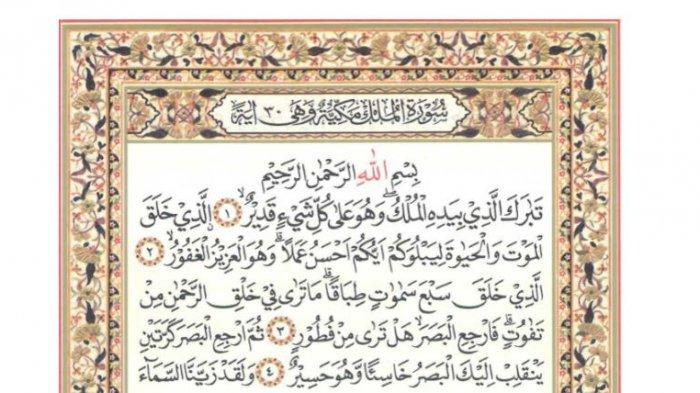 سُورَةُ الْمُلْكِ مَكِّيَّةٌ وَهِيَ ٣٠ اٰيَةً
بِسْمِ اللّٰهِ الرَّحْمٰنِ الرَّحِيْمِ
تَبٰرَكَ الَّذِيْ بِيَدِهِ الْمُلْكُۖ وَهُوَ عَلٰى كُلِّ شَيْءٍ قَدِيْرٌۙ ١ الَّذِيْ خَلَقَ
الْمَوْتَ وَالْحَيٰوةَ لِيَبْلُوَكُمْ اَيُّكُمْ اَحْسَنُ عَمَلًاۗ وَهُوَ الْعَزِيْزُ الْغَفُوْرُۙ ٢
الَّذِيْ خَلَقَ سَبْعَ سَمٰوٰتٍ طِبَاقًاۗ مَا تَرٰى فِيْ خَلْقِ الرَّحْمٰنِ مِنْ
تَفٰوُتٍۗ فَارْجِعِ الْبَصَرَۙ هَلْ تَرٰى مِنْ فُطُوْرٍ ٣ ثُمَّ ارْجِعِ الْبَصَرَ كَرَّتَيْنِ
يَنْقَلِبْ اِلَيْكَ الْبَصَرُ خَاسِئًا وَّهُوَ حَسِيْرٌ ٤ وَلَقَدْ زَيَّنَّا السَّمَاۤءَ